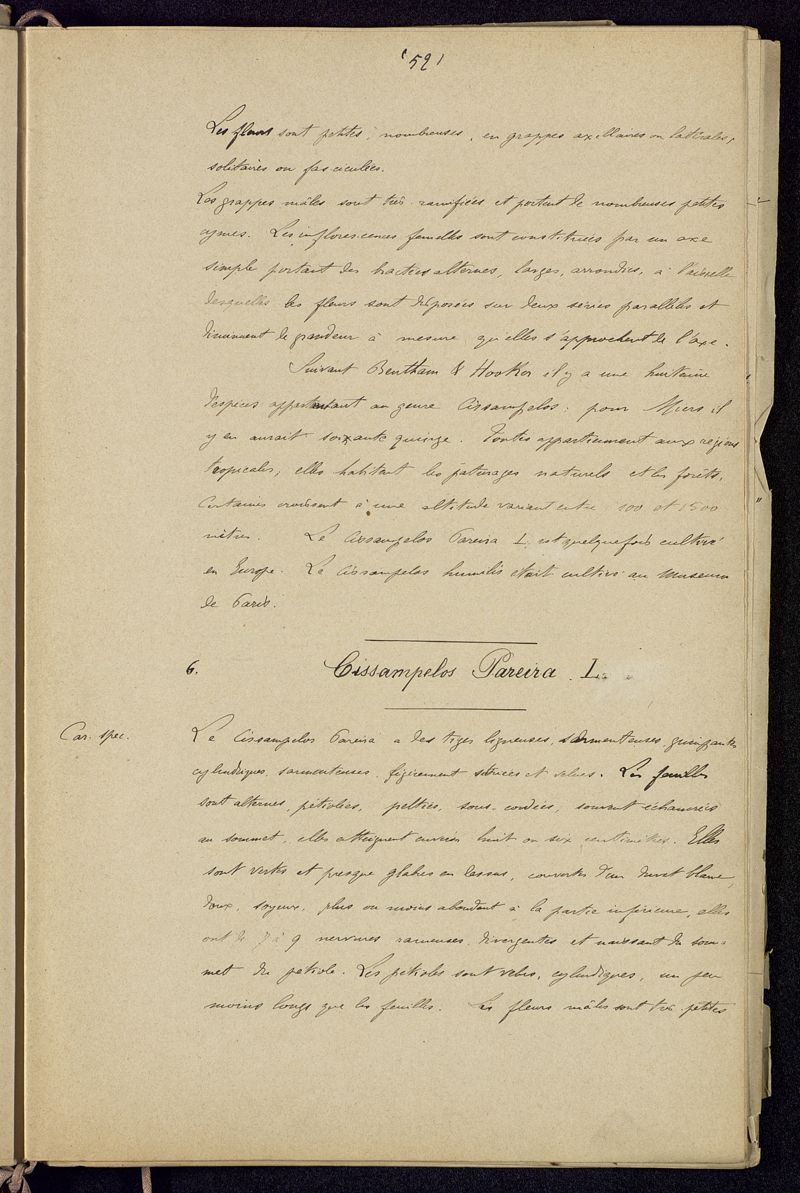 (52)
Les fleurs sont petites, nombreuses, en grappes axillaires ou latérales,
solitaires ou fasciculées.
Les grappes mâles sont très ramifiées et portent de nombreuses petites
cymes. Les inflorescences femelles sont constituées par un axe
simple portant des bractées alternes, larges, arrondies, à l'aisselle
desquelles les fleurs sont disposées sur deux séries parallèles et
diminuent de grandeur à mesure qu'elles s'approchent de l'axe.
Suivant Bentham & Hooker il y a une huitaine
d'espèces appartenant au genre Cissampelos; pour Miers il
y en aurait soixante quinze. Toutes appartiennent aux régions
tropicales, elles habitent les paturages naturels et les forêts.
Certaines croissent à une altitude variant entre 100 et 1500
mètres. Le Cissampelos Pareira L est quelquefois cultivé
en Europe. Le Cissampelos humilis était cultivé au Museum
de Paris.
6. Cissampelos Pareira L.
Car. spec. Le Cissampelos Pareira a des tiges ligneuses, sarmenteuses, grimpantes
cylindriques, sarmenteuses, légèrement striées et velues. Les feuilles
sont alternes, pétiolées, peltées, sous-cordées, souvent échancrées
au sommet, elles atteignent environ huit ou six centimètres. Elles
sont vertes et presque glabres en dessus, couvertes d'un duvet blanc,
doux, soyeux, plus ou moins abondant à la partie inférieure, elles
ont de 7 à 9 nervures rameuses, divergentes et naissant du som-
met du pétiole. Les pétioles sont velus, cylindriques, un peu
moins longs que les feuilles. Les fleurs mâles sont très petites